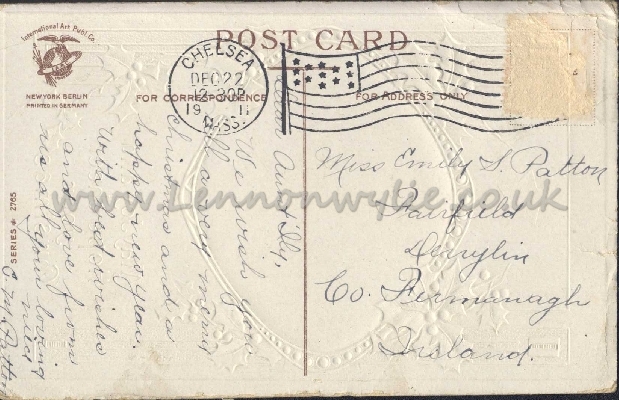 International Art Publ. Co.
NEW YORK BERLIN
PRINTED IN GERMANY
POST CARD
FOR CORRESPONDENCE
FOR ADDRESS ONLY
CHELSEA
DEC 22
12-30P
1911
MASS.
SERIES # 2765
Dear Aunt Ily,
We wish you
all a very merry
Christmas and a
happy new year.
With best wishes
and love from
us all, your loving
niece
E. M. Patton
Miss Emily S. Patton
Fairfield
Derrylin
Co. Fermanagh
Ireland.
www.Lennonwylie.co.uk